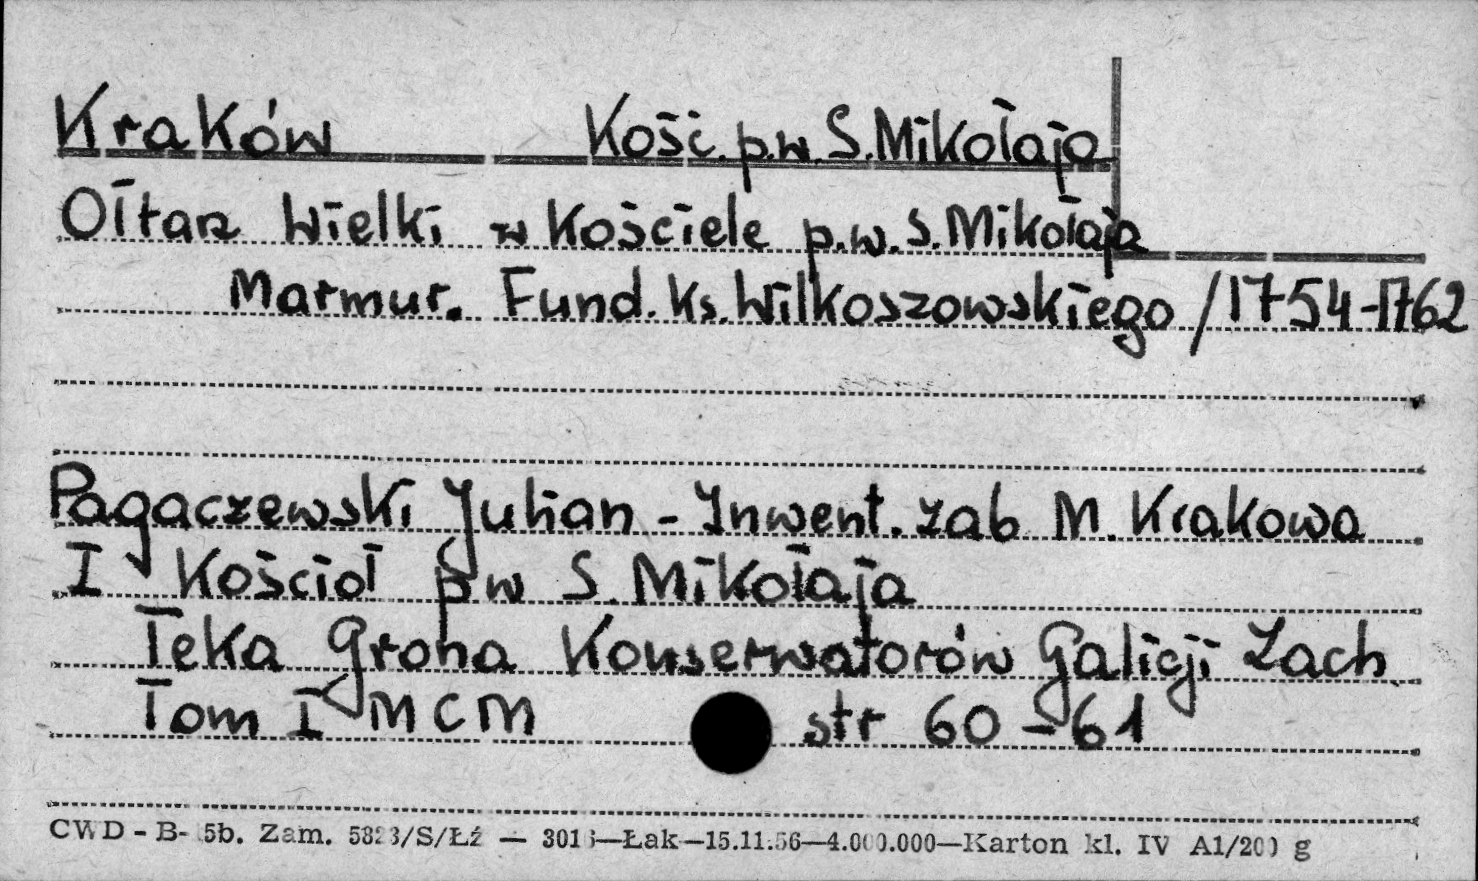 Kraków Kość. p.w. S. Mikołaja
Ołtarz Wielki w Kościele p.w. S. Mikołaja
Marmur. Fund. Ks. Wilkoszowskiego /1754-1762
Pagaczewski Julian - Inwent. zab M. Krakowa
I Kościoł pw S. Mikołaja
Teka Grona Konserwatorów Galicji Zach
Tom I MCM str 60-61
CWD - B- 5b. Zam. /S/Łź — —Łak—15.11.56—4.000.000—Karton kl. IV A1/200 g